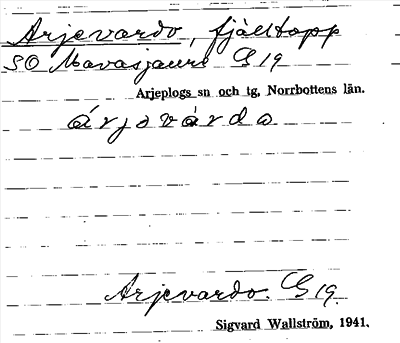 Arjevardo, fjälltopp
SO Mavasjaure G 19
Arjeplogs sn och tg, Norrbottens län.
árjovárdo
Arjevardo. G 19.
Sigvard Wallström, 1941.